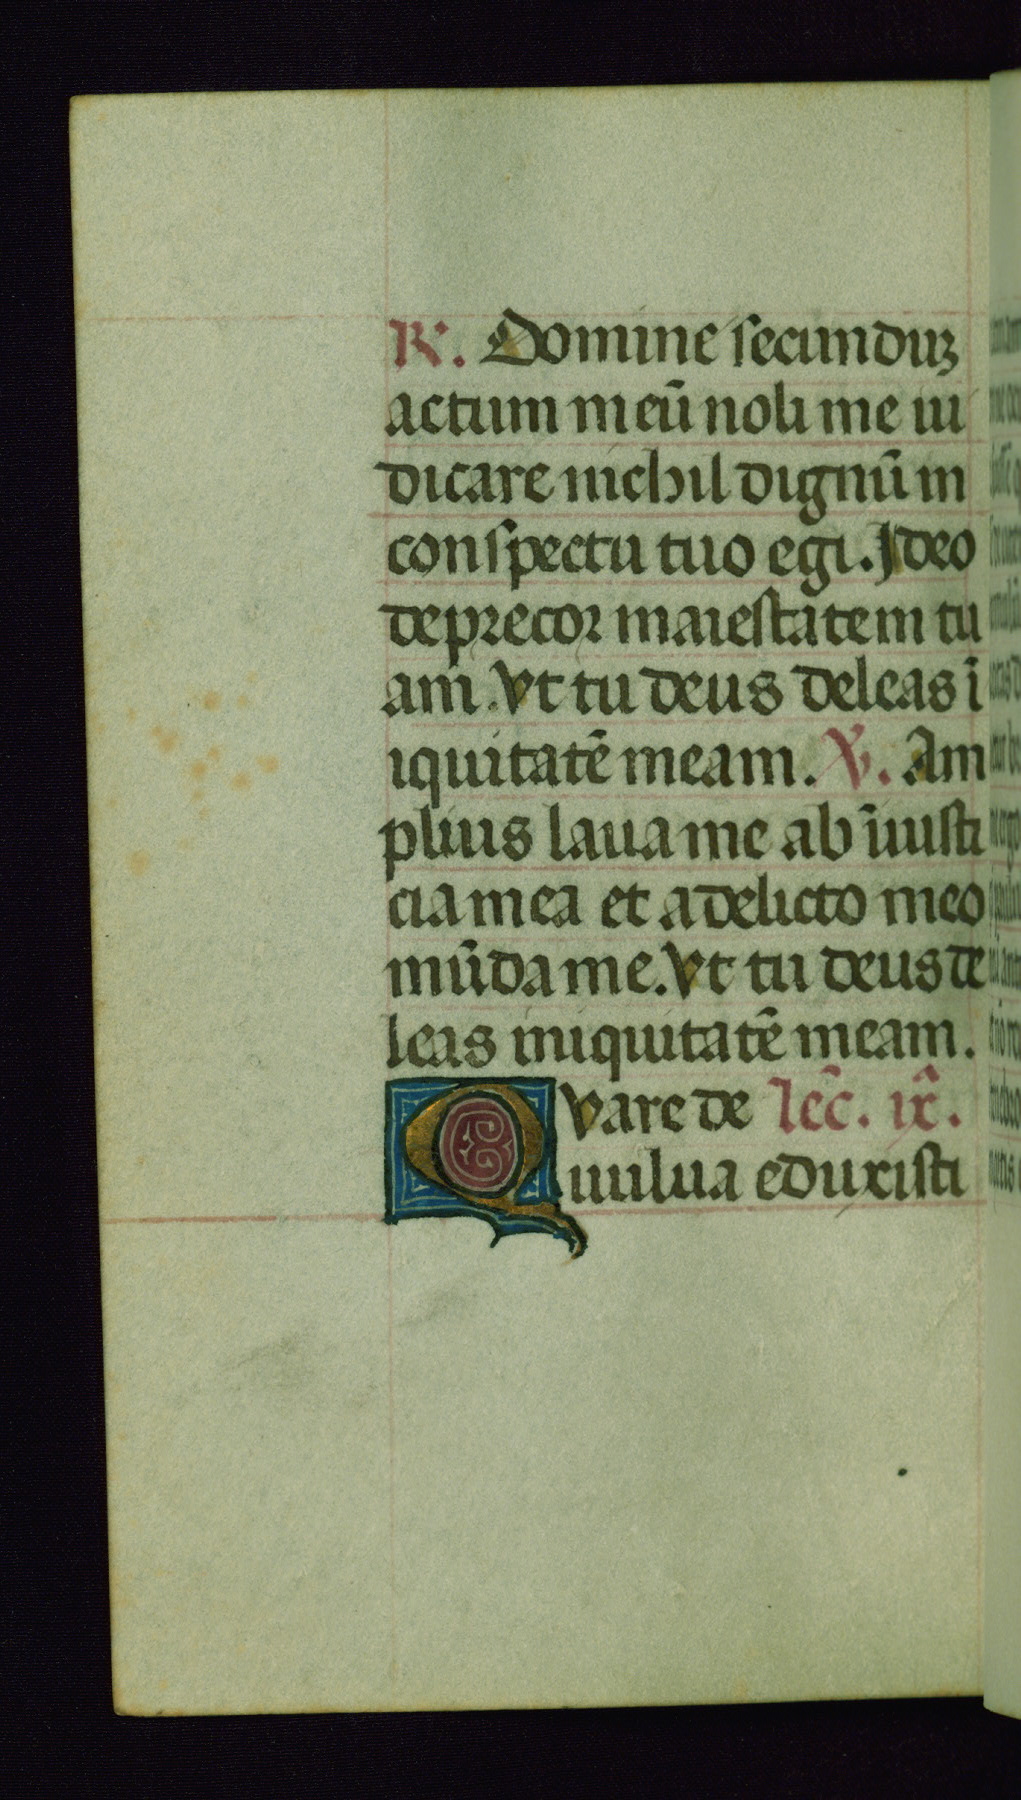 R. Domine secunduz
actum meū noli me iu
dicare nichil dignū in
conspectu tuo egi. Ideo
deprecor maiestatem tu
am. Vt tu deus deleas ī
iquitatē meam. V. Am
plius laua me ab īiusti
cia mea et a delicto meo
mūda me. Vt tu deus de
leas iniquitatē meam.
Quare de lec̄. ix̄.
uulua eduxisti